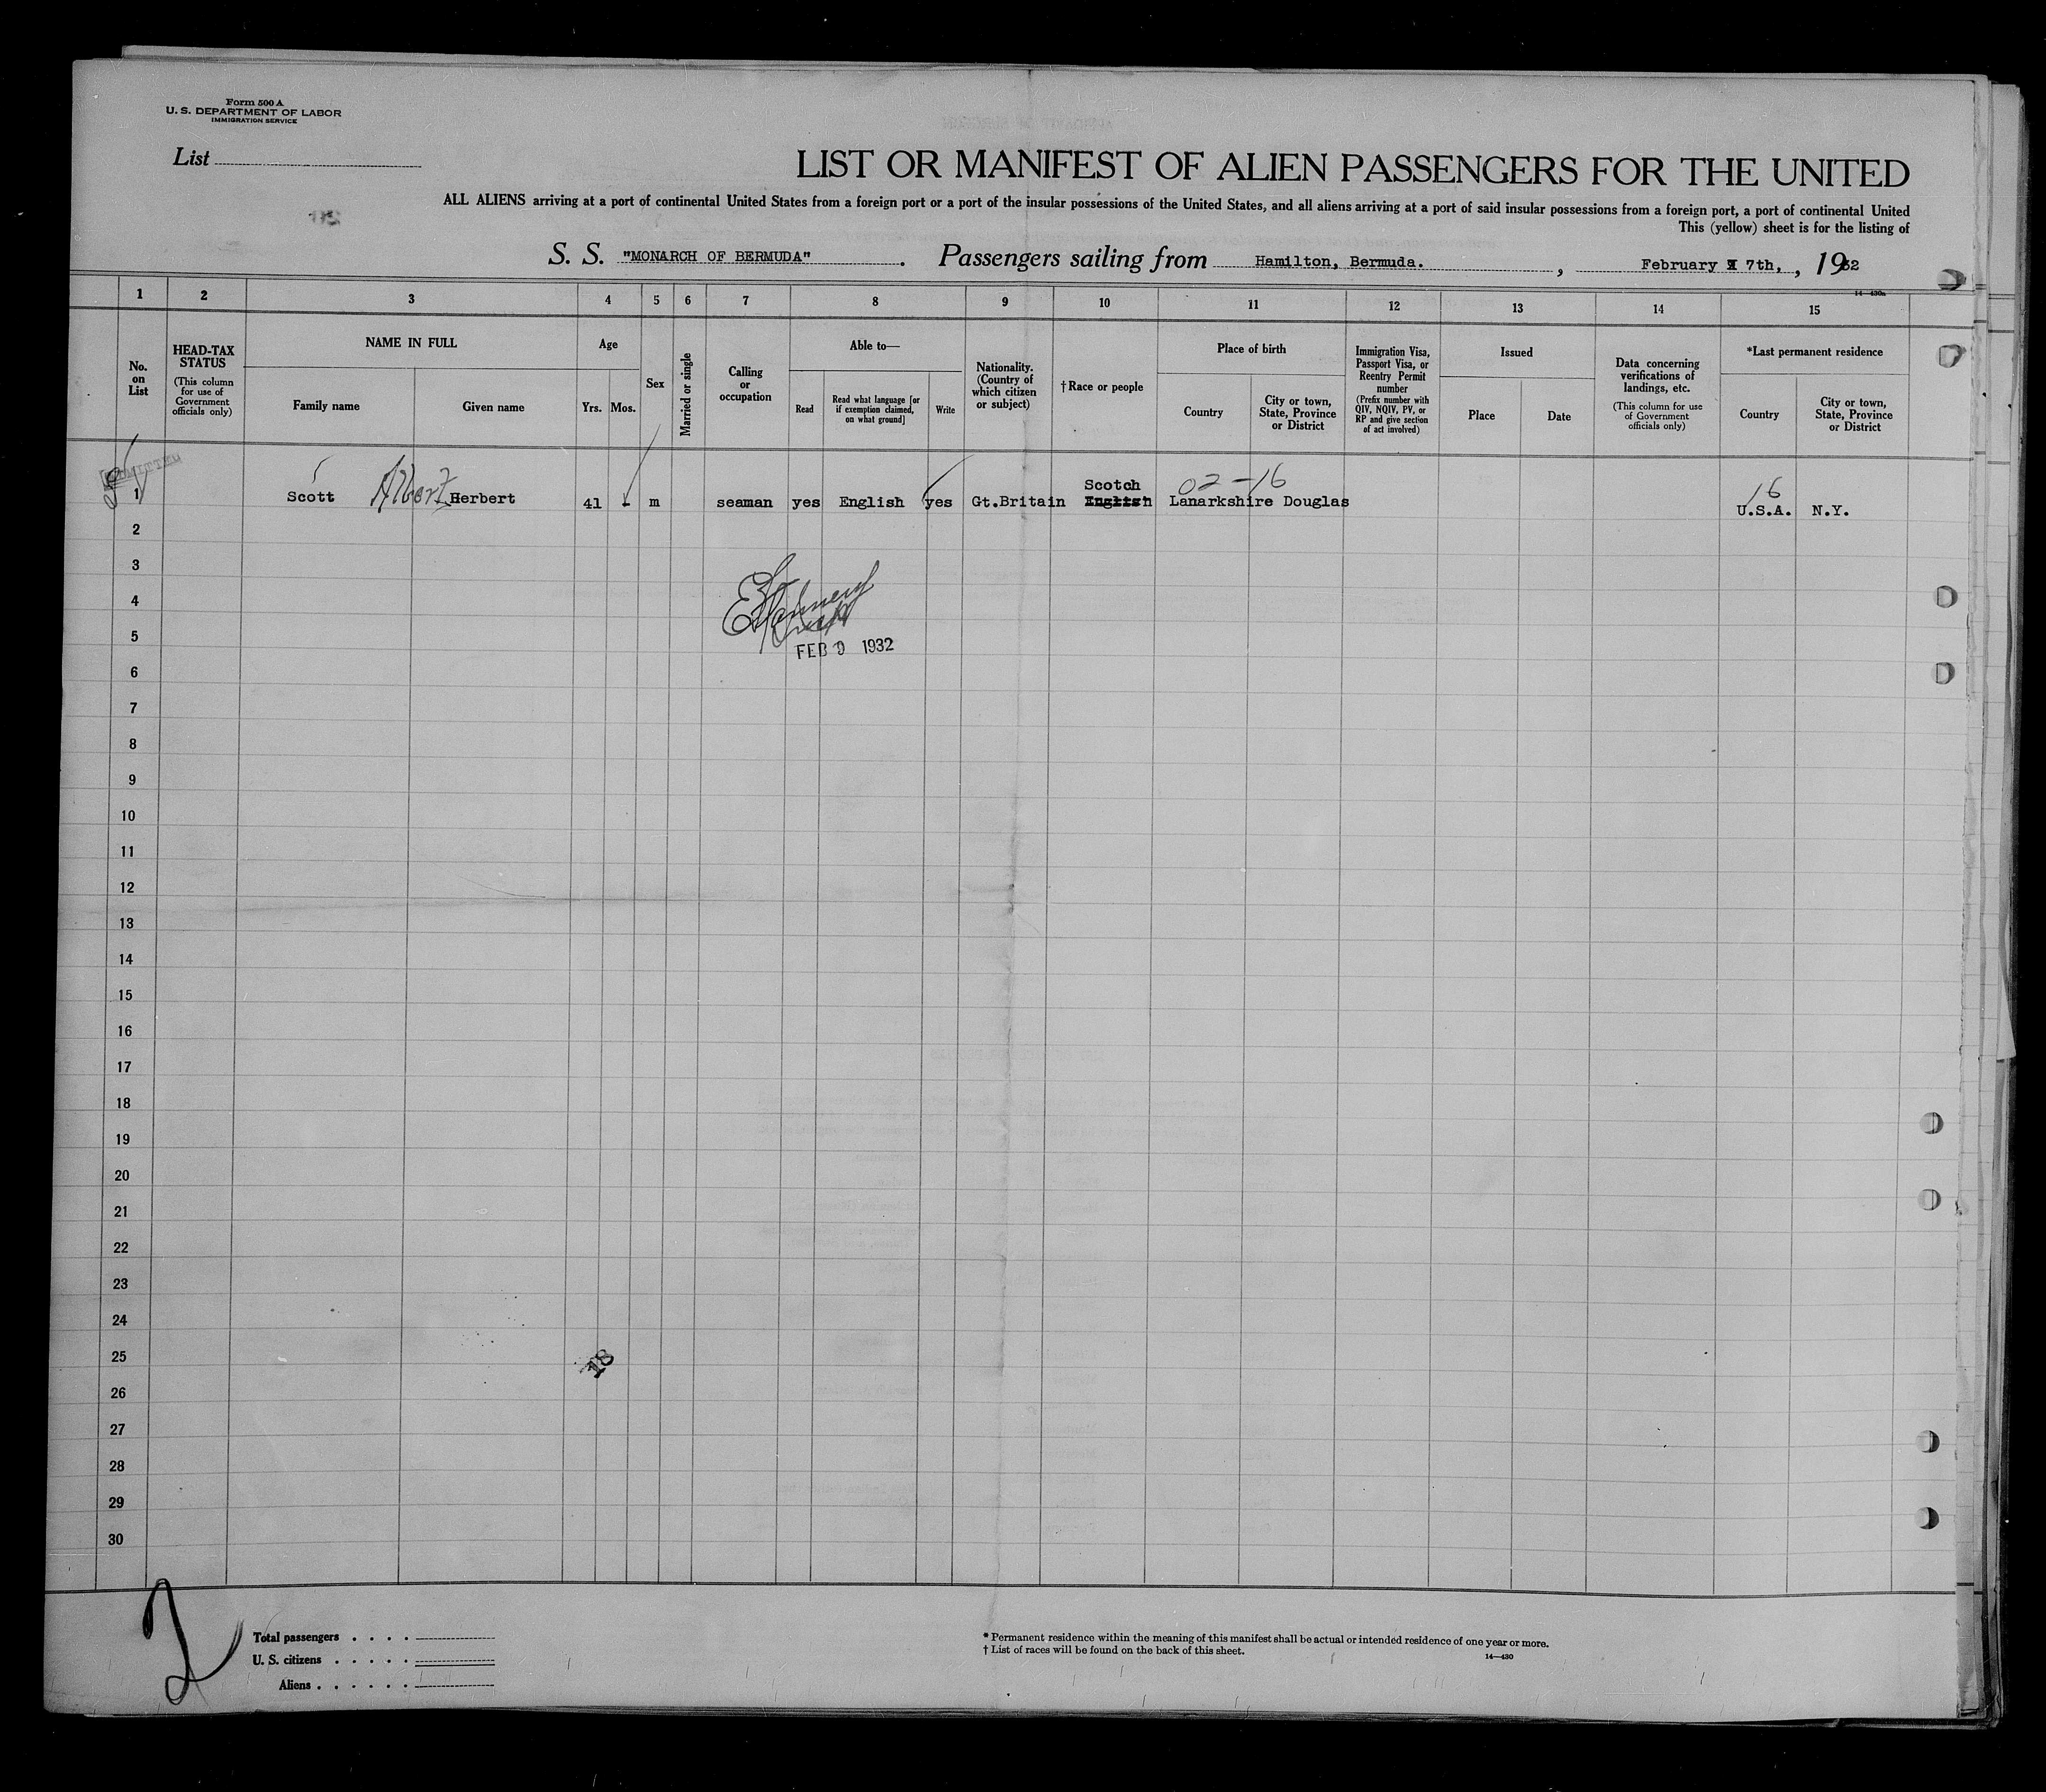 Form 500 A
U. S. DEPARTMENT OF LABOR
IMMIGRATION SERVICE
List
LIST OR MANIFEST OF ALIEN PASSENGERS FOR THE UNITED
ALL ALIENS arriving at a port of continental United States from a foreign port or a port of the insular possessions of the United States, and all aliens arriving at a port of said insular possessions from a foreign port, a port of continental United
This (yellow) sheet is for the listing of
S. S. "MONARCH OF BERMUDA". Passengers sailing from Hamilton, Bermuda., February 7th,, 1932
14—430a
1 2 3 4 5 6 7 8 9 10 11 12 13 14 15
No. on List
HEAD-TAX STATUS
(This column for use of Government officials only)
NAME IN FULL
Family name
Given name
Age
Yrs. Mos.
Sex
Married or single
Calling or occupation
Able to—
Read
Read what language [or if exemption claimed, on what ground]
Write
Nationality. (Country of which citizen or subject)
†Race or people
Place of birth
Country
City or town, State, Province or District
Immigration Visa, Passport Visa, or Reentry Permit number
(Prefix number with QIV, NQIV, PV, or RP and give section of act involved)
Issued
Place
Date
Data concerning verifications of landings, etc.
(This column for use of Government officials only)
*Last permanent residence
Country
City or town, State, Province or District
ADMITTED
Scotch 02-16 16
1 Scott Albert Herbert 41 - m seaman yes English yes Gt.Britain English Lanarkshire Douglas U.S.A. N.Y.
2
3
4
5
FEB 9 1932
6
7
8
9
10
11
12
13
14
15
16
17
18
19
20
21
22
23
24
25
18
26
27
28
29
30
2
Total passengers . . . .
U. S. citizens . . . . .
Aliens . . . . . .
* Permanent residence within the meaning of this manifest shall be actual or intended residence of one year or more.
† List of races will be found on the back of this sheet.
14—430